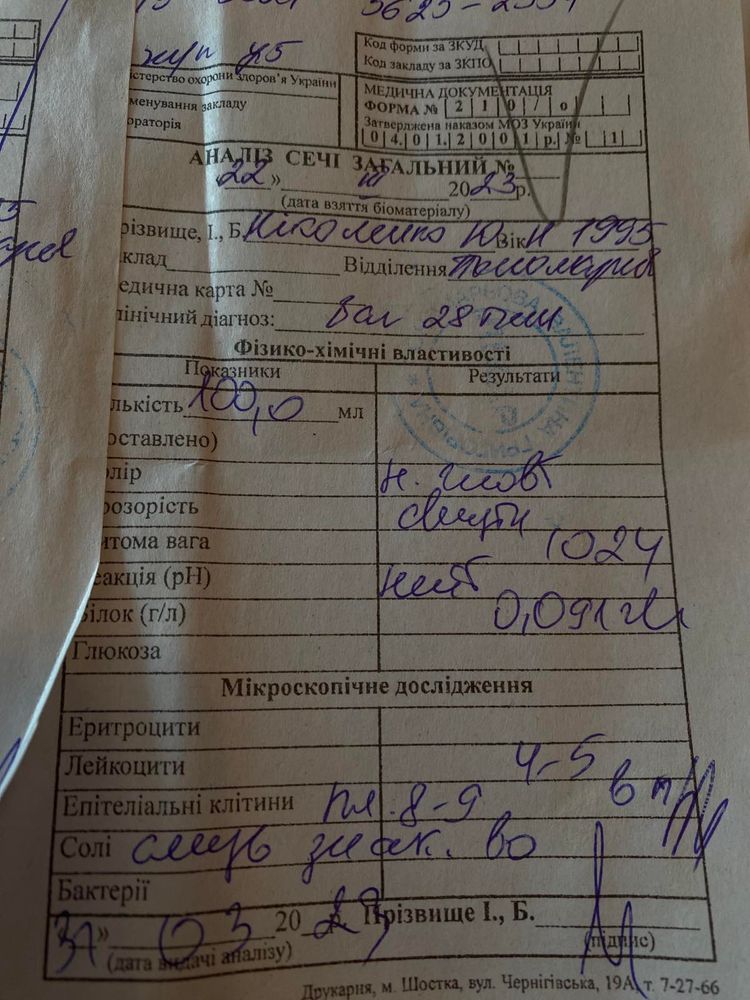 5623-
жуп у5
Код форми за ЗКУД
Код закладу за ЗКПО
істерство охорони здоров'я України
менування закладу
ораторія
МЕДИЧНА ДОКУМЕНТАЦІЯ
ФОРМА № 2 1 0 / о
Затверджена наказом МОЗ України
0 4. 0 1. 2 0 0 1 р. № 1
АНАЛІЗ СЕЧІ ЗАГАЛЬНИЙ №
22 » ІІІ 2023р.
(дата взяття біоматеріалу)
різвище, І., Б. Ніколенко Ю Вік Н 1995
клад Відділення
едична карта №
лінічний діагноз: Ваг 28 тиж
Фізико-хімічні властивості
Показники Результати
лькість 100,0 мл
оставлено)
олір н. жовт
розорість
итома вага 1024
еакція (рН)
ілок (г/л) 0,091 г/л
Глюкоза
Мікроскопічне дослідження
Еритроцити
Лейкоцити 4-5
Епітеліальні клітини пл. 8-9 в п/
Солі слизь знач. во
Бактерії
» 03 20 Прізвище І., Б.
(дата видачі аналізу) (підпис)
Друкарня, м. Шостка, вул. Чернігівська, 19А, т. 7-27-66